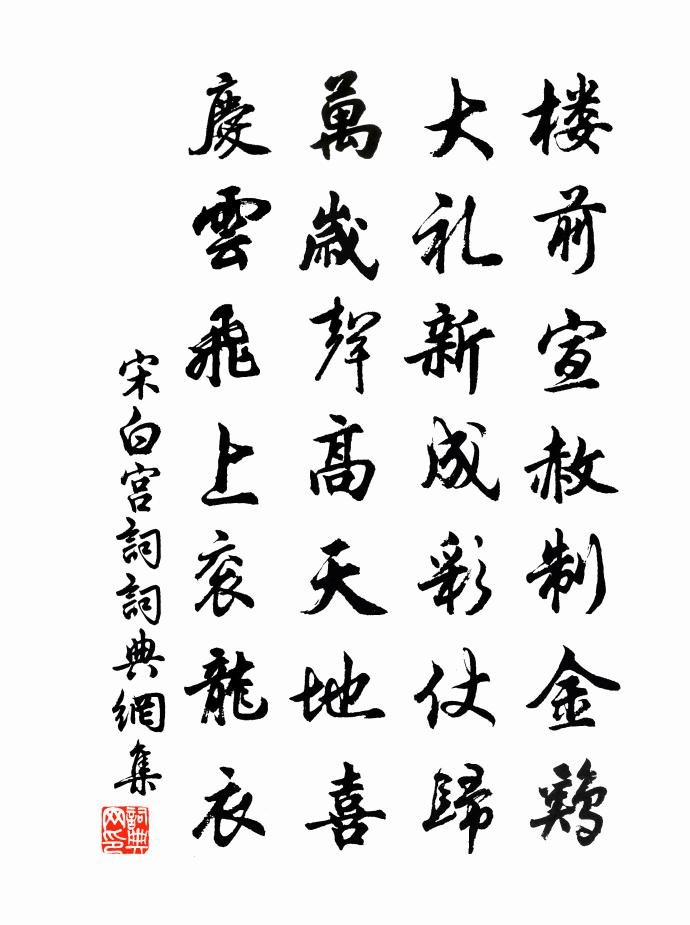 楼前宣赦制金鷄
大礼新成彩仗歸
萬歲聲高天地喜
慶雲飛上衮龍衣
宋白宫詞詞典網集
詞典网印